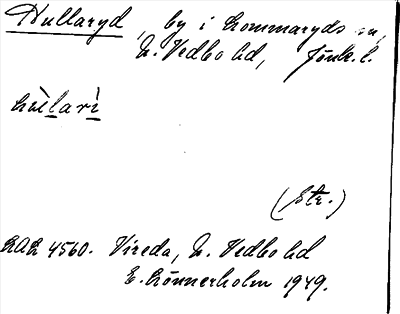 Hullaryd, by i Lommaryds sn,
N. Vedbo hd, Jönk. l.
hùlarì
(Str.)
OAU 4560. Vireda, N. Vedbo hd
E. Rönnerholm 1949.